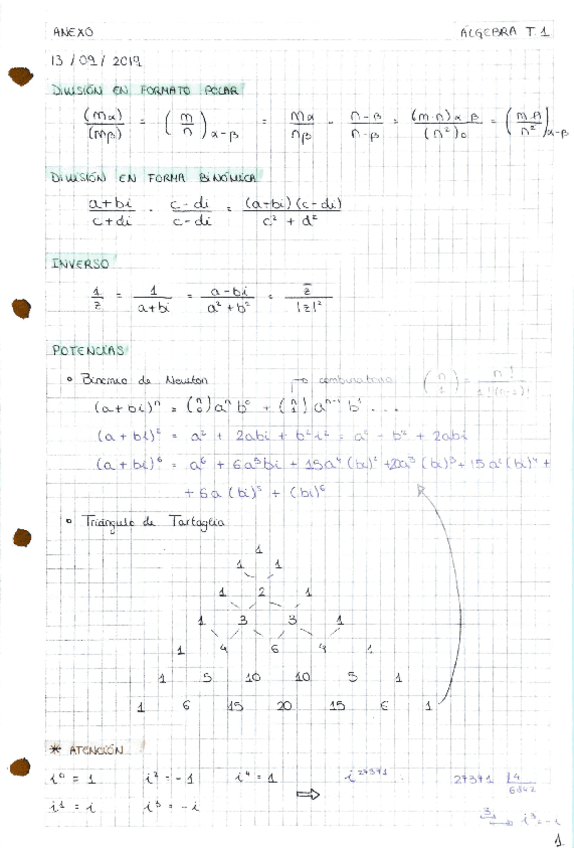 ANEXO
ÁLGEBRA T.1
13/09/2019
DIVISIÓN EN FORMATO POLAR
(mα)/(mβ) = (m/n)α-β = mα/nβ · n-β/n-β = (m·n)α-β/(n²)0 = (m·n/n²)α-β
DIVISIÓN EN FORMA BINÓMICA
a+bi/c+di · c-di/c-di = (a+bi)(c-di)/c² + d²
INVERSO
1/z = 1/a+bi = a-bi/a²+b² = z̄/|z|²
POTENCIAS
• Binomio de Newton → combinatorio
(a+bi)ⁿ = (n 0) aⁿ b⁰ + (n 1) aⁿ⁻¹ b¹ ...
(a+bi)² = a² + 2abi + b²i² = a² - b² + 2abi
(a+bi)⁶ = a⁶ + 6a⁵bi + 15a⁴(bi)² + 20a³(bi)³ + 15a²(bi)⁴ +
+ 6a(bi)⁵ + (bi)⁶
• Triángulo de Tartaglia
1
1 1
1 2 1
1 3 3 1
1 4 6 4 1
1 5 10 10 5 1
1 6 15 20 15 6 1
* ATENCIÓN !
i⁰ = 1 i² = -1 i⁴ = 1 ⇒ i²⁷³⁷¹ 27371 |4
6842
i¹ = i i³ = -i 3 → i³ = -i
1